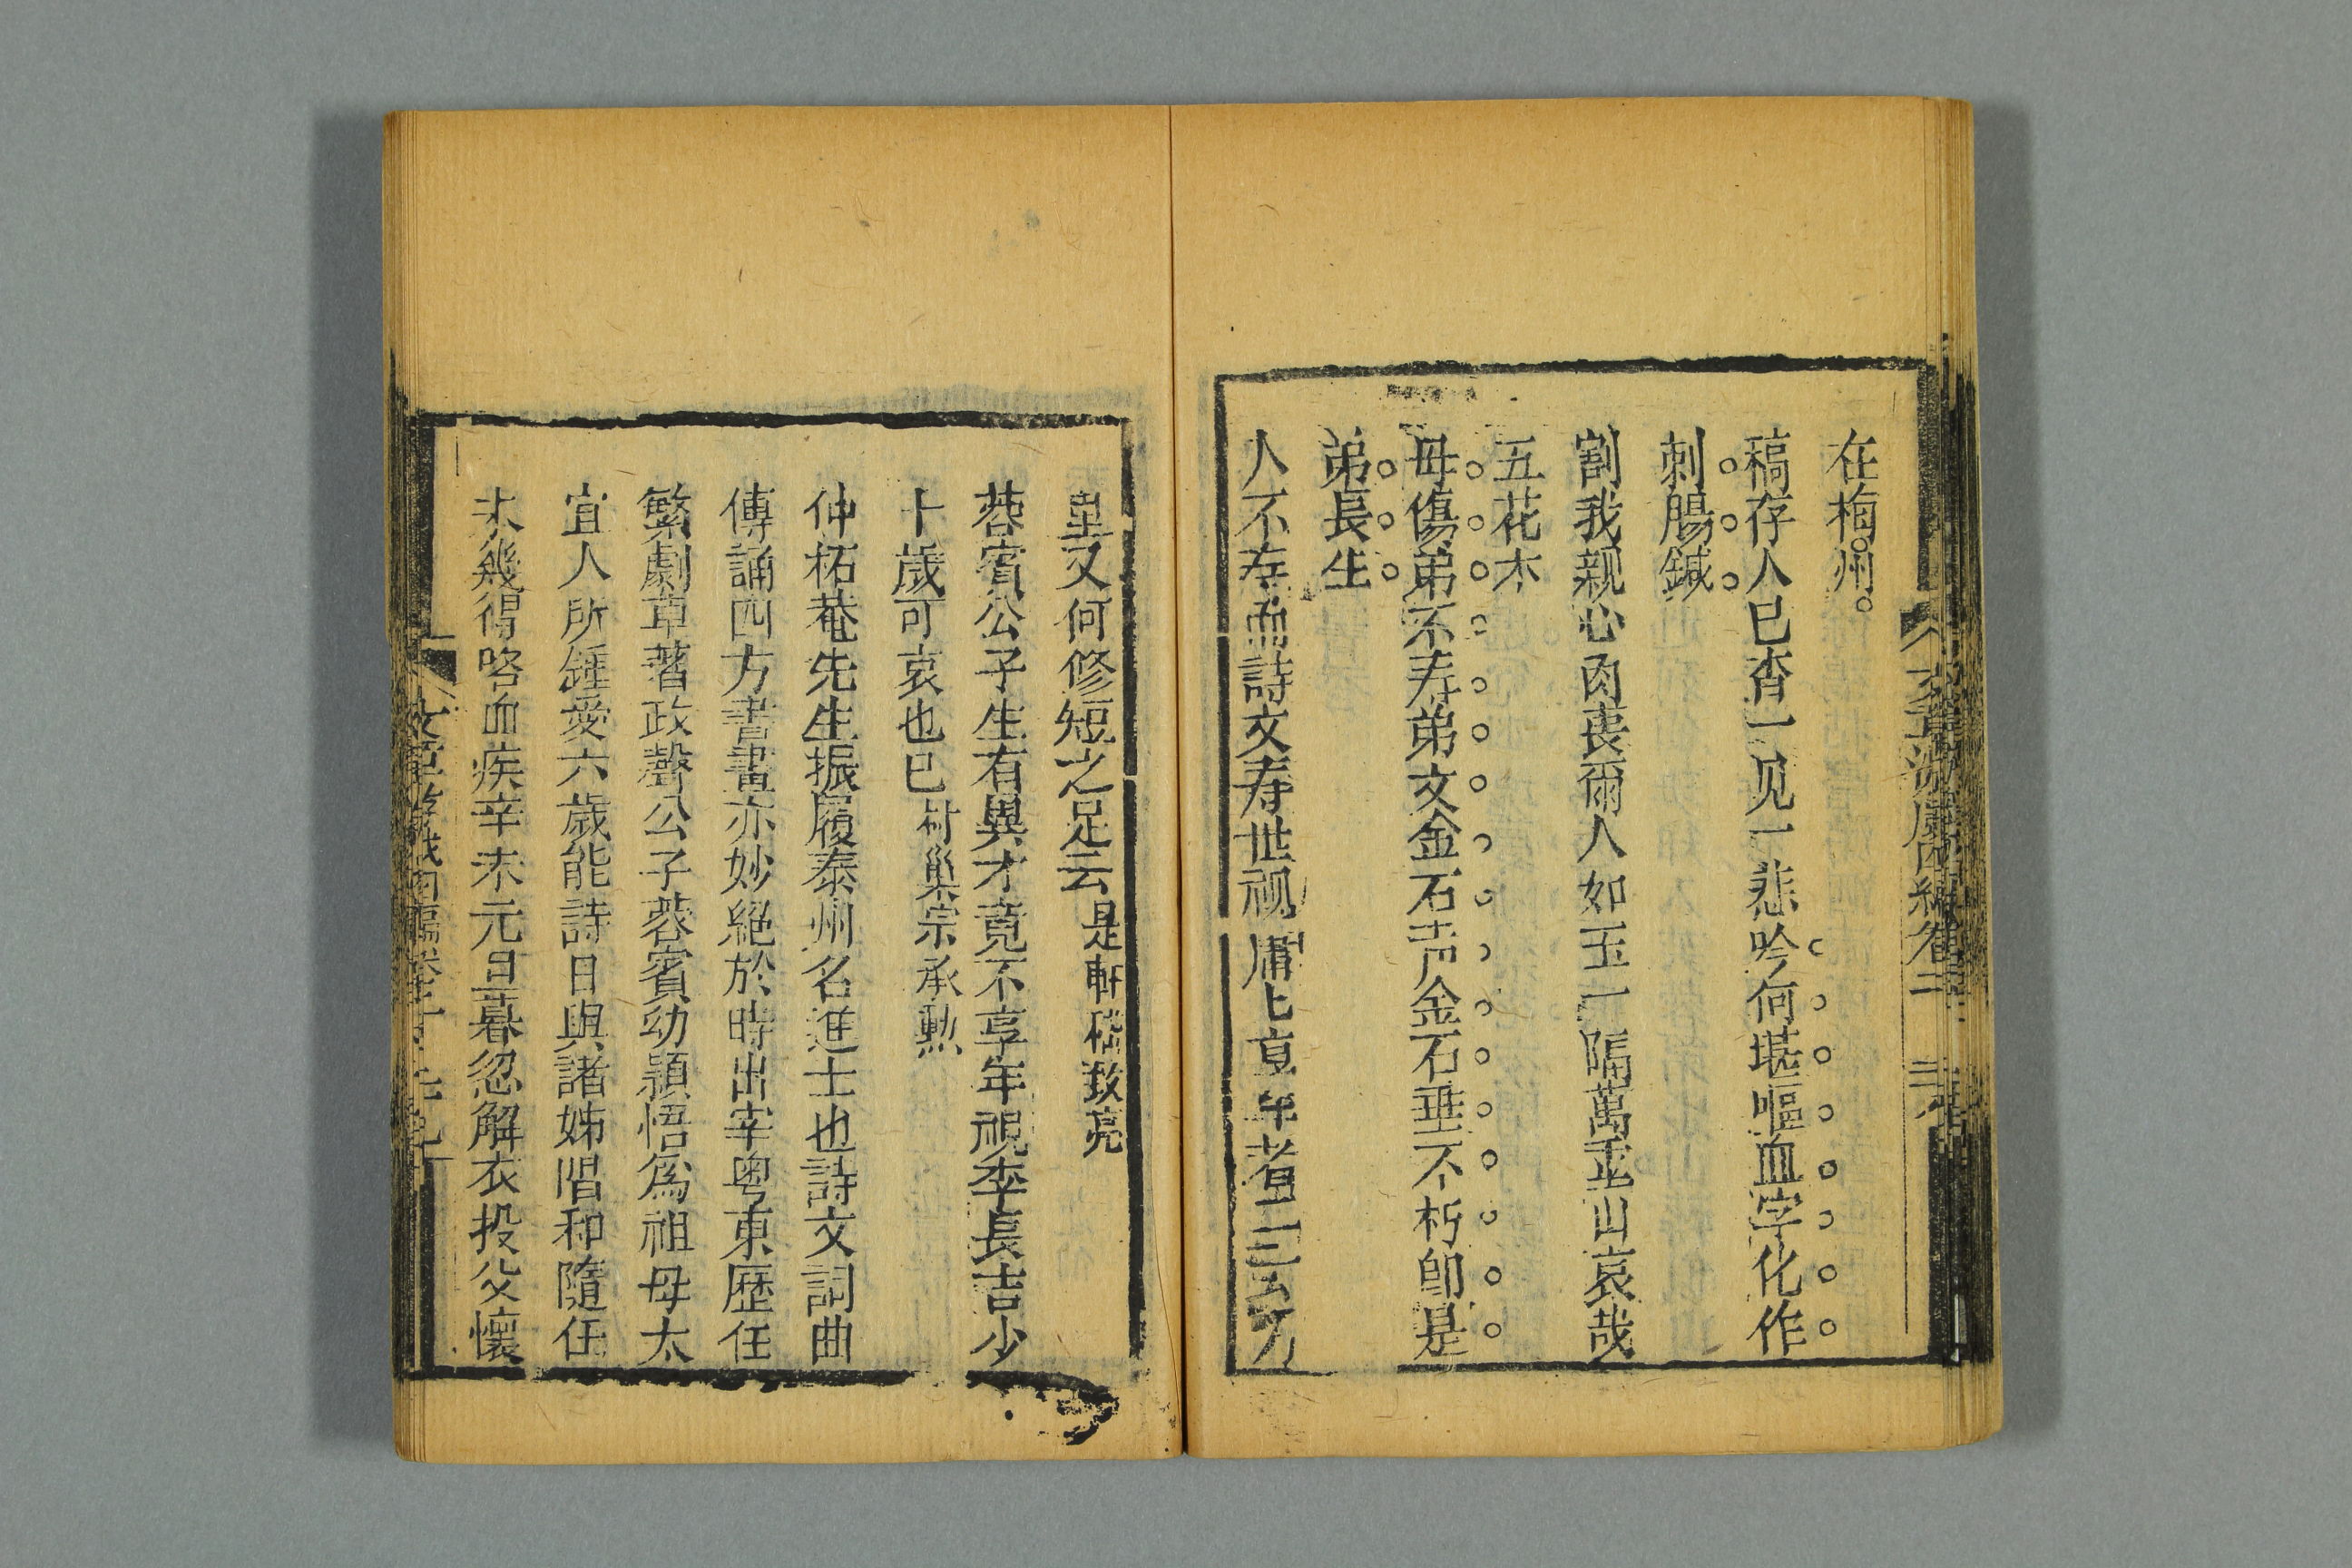 在梅州。
稿存人已杳一见一悲吟何堪嘔血字化作
刺腸鍼
割我親心肉喪爾人如玉一隔萬重山哀哉
五花木
母傷弟不寿弟文金石声金石垂不朽卽是
弟長生
人不寿而詩文寿世视庸上夀年者
皇又何修短之足云 是軒
蓉賓公子生有異才竟不享年視李長吉少
十歲可哀也已 村巢宗承勲
仲柘菴先生振履泰州名進士也詩文詞曲
傳誦四方書畫亦妙絕於時出宰粤東歷任
繁劇卓著政聲公子蓉賓幼穎悟為祖母太
宜人所鍾愛六歲能詩日與諸姊唱和隨任
未幾得咯血疾辛未元旦暮忽解衣投父懷